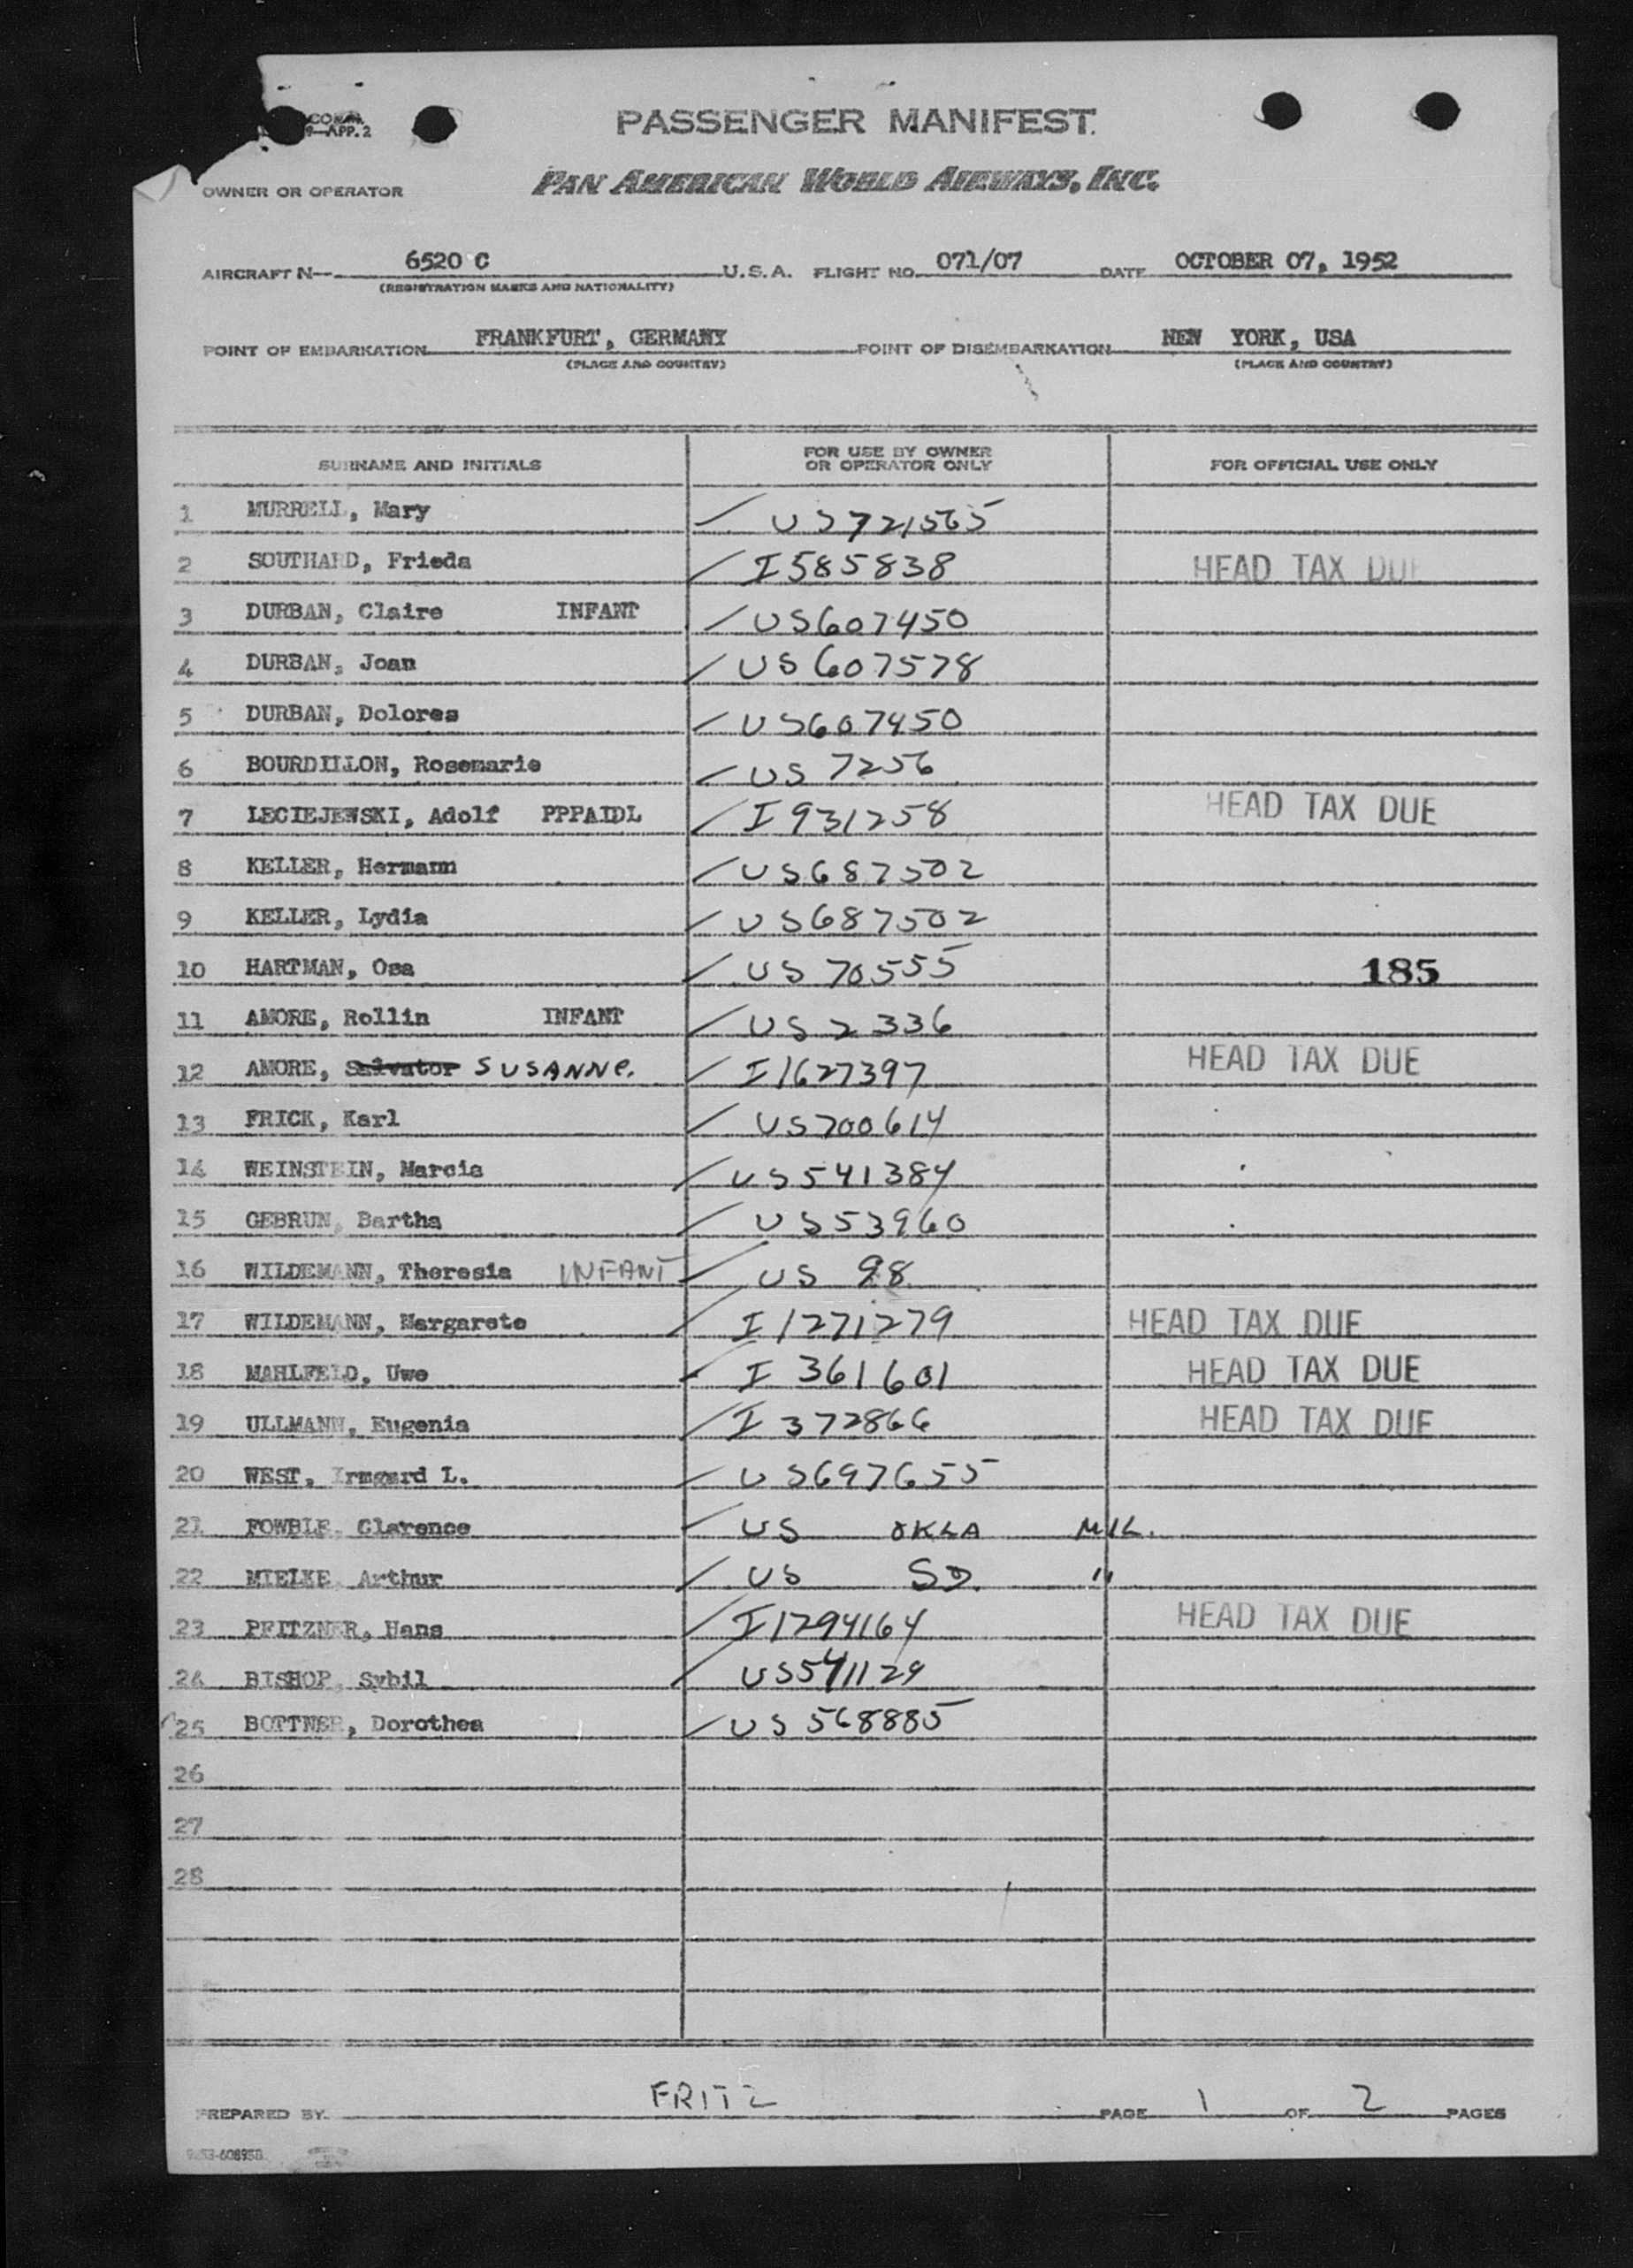 COMM.
9—APP. 2
PASSENGER MANIFEST
OWNER OR OPERATOR PAN AMERICAN WORLD AIRWAYS, INC.
AIRCRAFT N— 6520 C U.S.A. FLIGHT NO. 071/07 DATE OCTOBER 07, 1952
(REGISTRATION MARKS AND NATIONALITY)
POINT OF EMBARKATION FRANKFURT, GERMANY POINT OF DISEMBARKATION NEW YORK, USA
(PLACE AND COUNTRY) (PLACE AND COUNTRY)
SURNAME AND INITIALS FOR USE BY OWNER OR OPERATOR ONLY FOR OFFICIAL USE ONLY
1 MURRELL, Mary US721565
2 SOUTHARD, Frieda I585838 HEAD TAX DUE
3 DURBAN, Claire INFANT US607450
4 DURBAN, Joan US607578
5 DURBAN, Dolores US607450
6 BOURDILLON, Rosemarie US 7256
7 LECIEJEWSKI, Adolf PPPAIDL I931258 HEAD TAX DUE
8 KELLER, Hermann US687502
9 KELLER, Lydia US687502
10 HARTMAN, Osa US 70555 185
11 AMORE, Rollin INFANT US2336
12 AMORE, Salvator SUSANNe. I1627397 HEAD TAX DUE
13 FRICK, Karl US700614
14 WEINSTEIN, Marcia US541384
15 GEBRUN, Bartha US53960
16 WILDEMANN, Theresia INFANT US 98
17 WILDEMANN, Margarete I1271279 HEAD TAX DUE
18 MAHLFELD, Uwe I 361601 HEAD TAX DUE
19 ULLMANN, Eugenia I 372866 HEAD TAX DUE
20 WEST, Irmgard L. US697655
21 FOWBLE, Clarence US OKLA MIL.
22 MIELKE, Arthur US SD. "
23 PFITZNER, Hans I1294164 HEAD TAX DUE
24 BISHOP, Sybil US541129
25 BOTTNER, Dorothea US 568885
26
27
28
PREPARED BY FRITZ PAGE 1 OF 2 PAGES